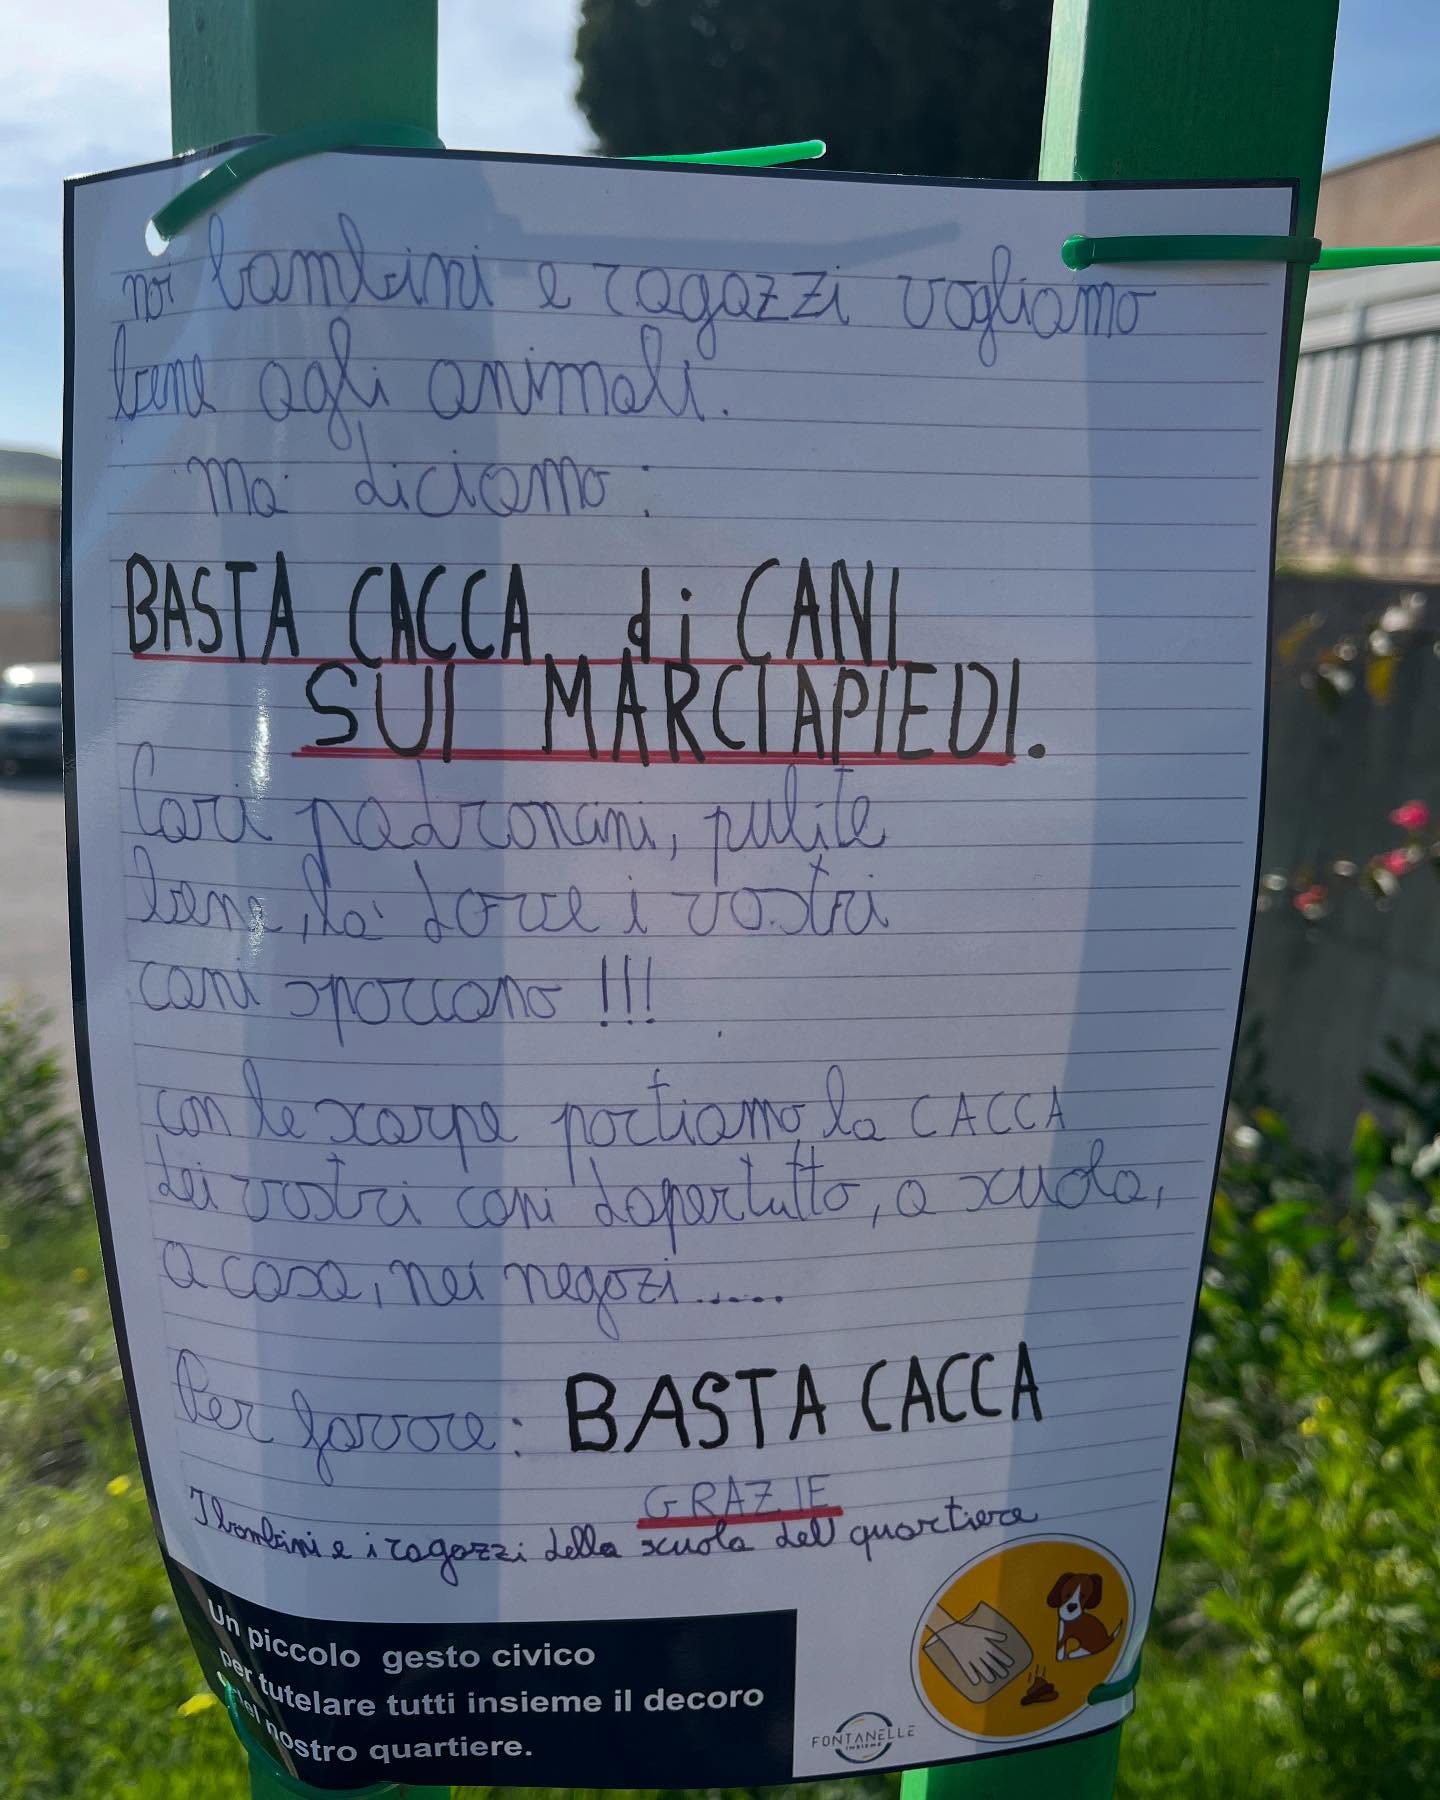 noi bambini e ragazzi vogliamo
bene agli animali.
ma diciamo:
BASTA CACCA di CANI
SUI MARCIAPIEDI.
Cari padroncini, pulite
bene, la' dove i vostri
cani sporcano !!!
con le scarpe portiamo la CACCA
dei vostri cani dapertutto, a scuola,
a casa, nei negozi.....
Per favore: BASTA CACCA
GRAZIE
I bambini e i ragazzi della scuola del quartiere
Un piccolo gesto civico
per tutelare tutti insieme il decoro
del nostro quartiere.
FONTANELLE
INSIEME